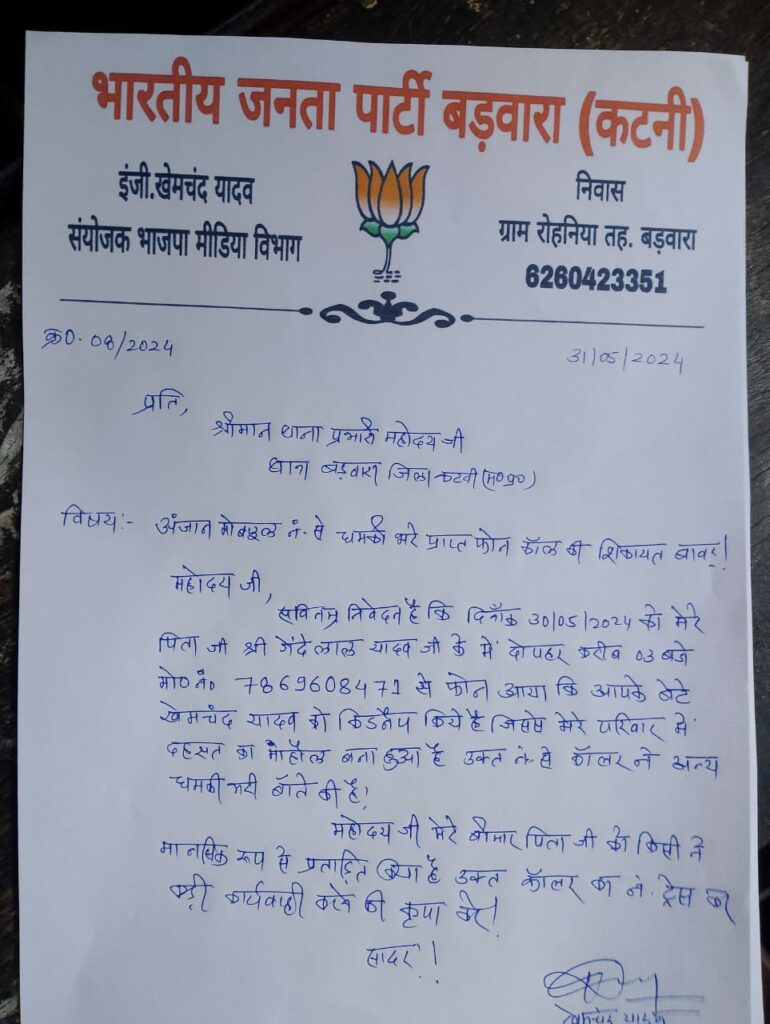 भारतीय जनता पार्टी बड़वारा (कटनी)
इंजी.खेमचंद यादव
संयोजक भाजपा मीडिया विभाग
निवास
ग्राम रोहनिया तह. बड़वारा
6260423351
क्र0. 08/2024
31/05/2024
प्रति,
श्रीमान थाना प्रभारी महोदय जी
थाना बड़वारा जिला कटनी (म०प्र०)
विषय:- अंजान मोबाइल नं. से धमकी भरे प्राप्त फोन कॉल की शिकायत बावद!
महोदय जी,
सविनम्र निवेदन है कि दिनाँक 30/05/2024 को मेरे
पिता जी श्री गेंदेलाल यादव जी के में दोपहर करीब 03 बजे
मो0 नं0 7869608471 से फोन आया कि आपके बेटे
खेमचंद यादव को किडनैप किये है जिससे मेरे परिवार में
दहसत का माहौल बना हुआ है उक्त नं. से कॉलर ने अन्य
धमकी भरी बाॅते की है!
महोदय जी मेरे बीमार पिता जी को किसी ने
मानसिक रूप से प्रताड़ित किया है उक्त कॉलर का नं. ट्रेस कर
कड़ी कार्यवाही करने की कृपा करें!
सादर!
खेमचंद यादव